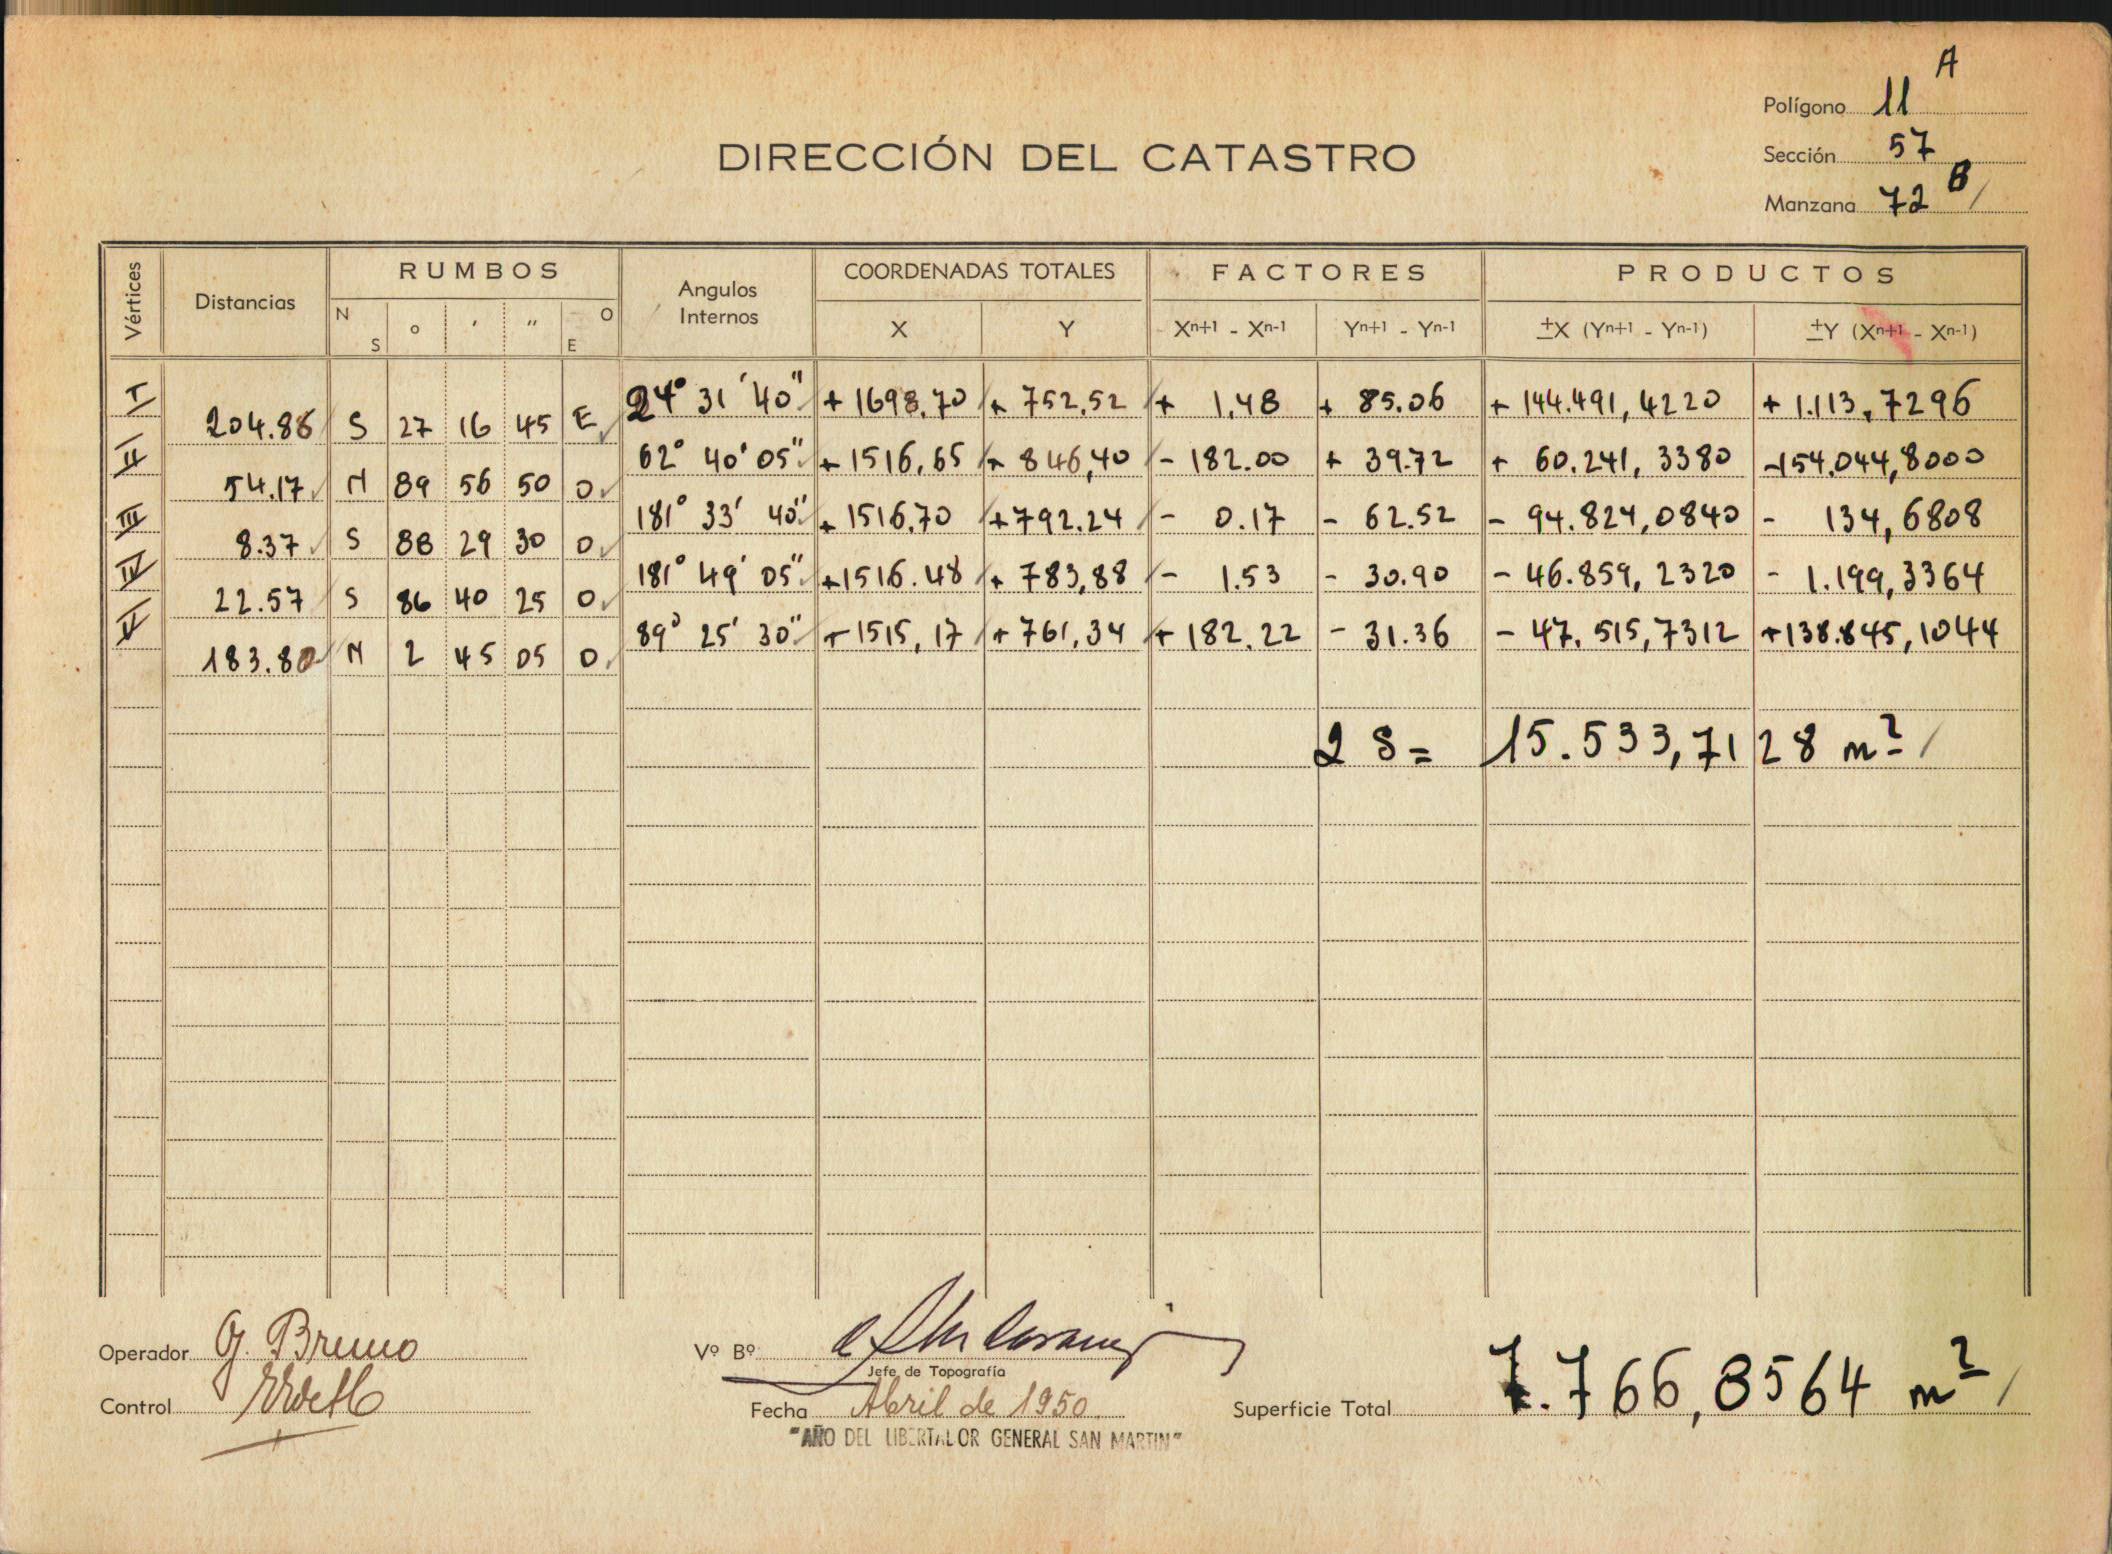 A
Polígono 11
DIRECCIÓN DEL CATASTRO
Sección 57
Manzana 72 B
Vértices Distancias RUMBOS Angulos Internos COORDENADAS TOTALES FACTORES PRODUCTOS
N S ° ' " O E X Y Xn+1 - Xn-1 Yn+1 - Yn-1 ±X (Yn+1 - Yn-1) ±Y (Xn+1 - Xn-1)
I 24° 31' 40" + 1698,70 + 752,52 + 1,48 + 85.06 + 144.491,4220 + 1.113,7296
204.86 S 27 16 45 E
II 62° 40' 05" + 1516,65 + 846,40 - 182.00 + 39.72 + 60.241,3380 -154.044,8000
54.17 N 89 56 50 O
III 181° 33' 40" + 1516,70 + 792.24 - 0.17 - 62.52 - 94.824,0840 - 134,6808
8.37 S 88 29 30 O
IV 181° 49' 05" + 1516.48 + 783,88 - 1.53 - 30.90 - 46.859,2320 - 1.199,3364
22.57 S 86 40 25 O
V 89° 25' 30" + 1515,17 + 761,34 + 182.22 - 31.36 - 47.515,7312 +138.845,1044
183.80 N 2 45 05 O
2 S = 15.533,7128 m²
Operador G. Bruno
Vº Bº
Jefe de Topografía
Control
Fecha Abril de 1950.
Superficie Total 7.766,8564 m²
"AÑO DEL LIBERTALOR GENERAL SAN MARTIN"